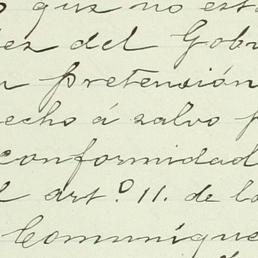 que no est
del Gob
pretensión
echo á salvo
conformidad
art.º 11. de la
Comuníque